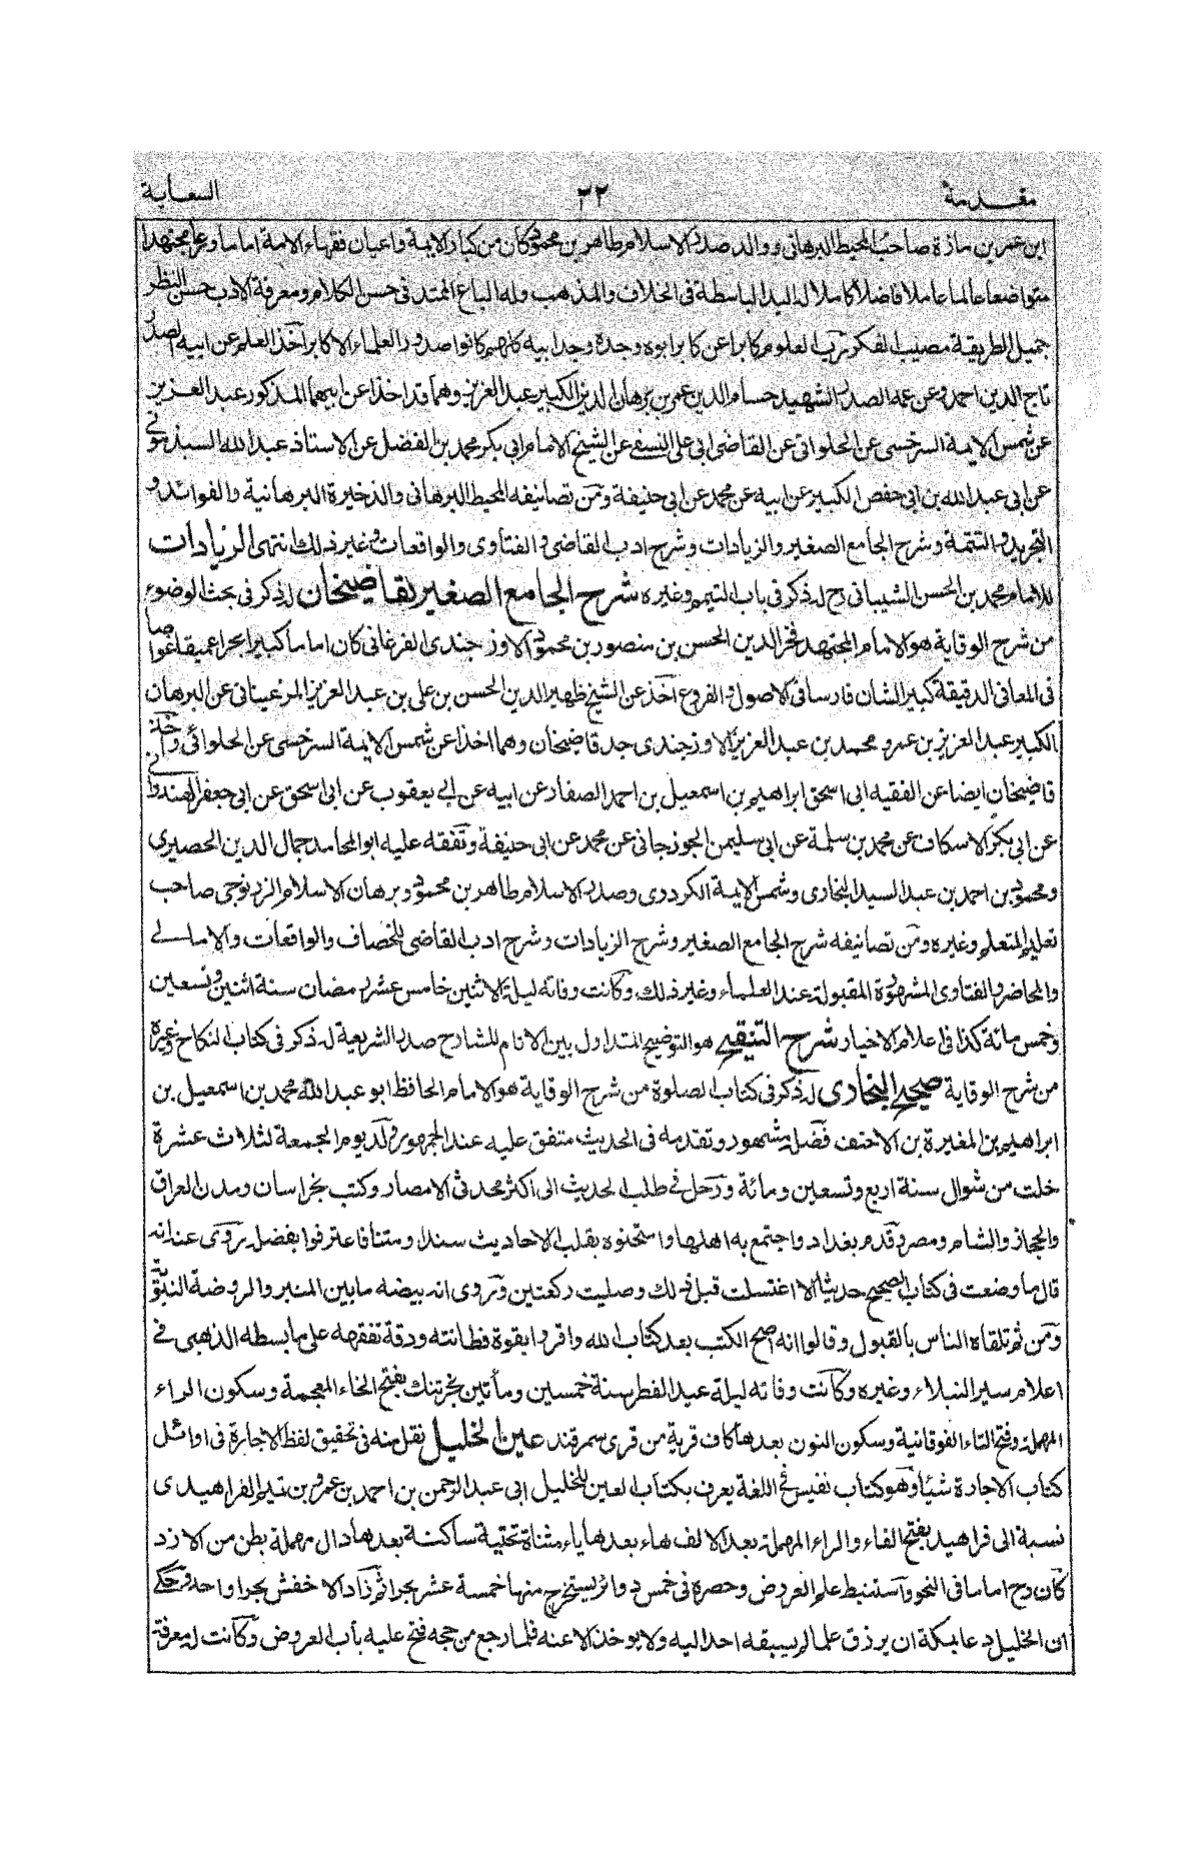 مقدمة
٢٢
السعاية
ابن عمر بن مازة صاحب المحيط البرهانى ووالد صدر الاسلام طاهر بن محمود كان من كبار الايمة واعيان فقهاء الامة اماما ورعا مجتهدا
متواضعا عالما عاملا فاضلا كاملا له اليد الباسطة فى الخلاف والمذهب وله الباع الممتد فى حسن الكلام ومعرفة الادب حسن النظر
جميل الطريقة مصيب الفكر ترب العلوم كابرا عن كابر ابوه وجده وجد ابيه كلهم كانوا صدور العلماء الاكابر اخذ العلم عن ابيه الصدر
تاج الدين احمد وعن عمه الصدر الشهيد حسام الدين عمر بن برهان الدين الكبير عبد العزيز وهما قد اخذا عن ابيهما المذكور عبد العزيز
عن شمس الايمة السرخسى عن الحلوانى عن القاضى ابى على النسفى عن الشيخ الامام ابى بكر محمد بن الفضل عن الاستاذ عبد الله السبذمونى
عن ابى عبد الله بن ابى حفص الكبير عن ابيه عن محمد عن ابى حنيفة ومن تصانيفه المحيط البرهانى والذخيرة البرهانية والفوائد و
التجريد والتتمة وشرح الجامع الصغير والزيادات وشرح ادب القاضى والفتاوى والواقعات وغير ذلك انتهى الزيادات
للامام محمد بن الحسن الشيبانى رح له ذكر فى باب التيمم وغيره شرح الجامع الصغير لقاضيخان له ذكر فى بحث الوضوء
من شرح الوقاية هو الامام المجتهد فخر الدين الحسن بن منصور بن محمود الاوزجندى الفرغانى كان اماما كبيرا بحرا عميقا غواصا
فى المعانى الدقيقة كبير الشان فارسا فى الاصول والفروع اخذ عن الشيخ ظهير الدين الحسن بن على بن عبد العزيز المرغينانى عن البرهان
الكبير عبد العزيز بن عمر و محمد بن عبد العزيز الاوزجندى جد قاضيخان وهما اخذا عن شمس الايمة السرخسى عن الحلوائى واخذ
قاضيخان ايضا عن الفقيه ابى اسحق ابراهيم بن اسمعيل بن احمد الصفار عن ابيه عن ابى يعقوب عن ابى اسحق عن ابى جعفر الهندوانى
عن ابى بكر الاسكاف عن محمد بن سلمة عن ابى سليمن الجوزجانى عن محمد عن ابى حنيفة وتفقه عليه ابو المحامد جمال الدين الحصيرى
ومحمود بن احمد بن عبد السيد البخارى وشمس الايمة الكردرى وصدر الاسلام طاهر بن محمود وبرهان الاسلام الزرنوجى صاحب
تعليم المتعلم وغيره ومن تصانيفه شرح الجامع الصغير وشرح الزيادات وشرح ادب القاضى للخصاف والواقعات والامالى
والمحاضر والفتاوى المشهورة المقبولة عند العلماء وغير ذلك وكانت وفاته ليلة الاثنين خامس عشر رمضان سنة اثنين وتسعين
وخمس مائة كذا فى اعلام الاخيار شرح التنقيح هو التوضيح المتداول بين الانام للشارح صدر الشريعة له ذكر فى كتاب النكاح وغيره
من شرح الوقاية صحيح البخارى له ذكر فى كتاب الصلوة من شرح الوقاية هو الامام الحافظ ابو عبد الله محمد بن اسمعيل بن
ابراهيم بن المغيرة بن الاحنف فضله مشهور وتقدمه فى الحديث متفق عليه عند الجمهور ولد يوم الجمعة لثلاث عشرة
خلت من شوال سنة اربع وتسعين ومائة ورحل فى طلب الحديث الى اكثر محدثى الامصار وكتب بخراسان ومدن العراق
والحجاز والشام ومصر وقدم بغداد واجتمع به اهلها وامتحنوه بقلب الاحاديث سندا ومتنا فاعترفوا بفضله يروى عنه انه
قال ما وضعت فى كتاب الصحيح حديثا الا اغتسلت قبل ذلك وصليت ركعتين ويروى انه بيضه مابين المنبر والروضة النبوية
ومن ثم تلقاه الناس بالقبول وقالوا انه اصح الكتب بعد كتاب الله واقروا بقوة فطانته ودقة تفقهه على ما بسطه الذهبى فى
اعلام سير النبلاء وغيره وكانت وفاته ليلة عيد الفطر سنة خمسين ومأتين بخرتنك بفتح الخاء المعجمة وسكون الراء
المهملة وفتح التاء الفوقانية وسكون النون بعدها كاف قرية من قرى سمرقند عين الخليل نقل منه فى تحقيق لفظ الاجارة فى اوائل
كتاب الاجارة شيئا وهو كتاب نفيس فى اللغة يعرف بكتاب العين للخليل ابى عبد الرحمن بن احمد بن عمرو بن تميم الفراهيدى
نسبة الى فراهيد بفتح الفاء والراء المهملة بعد الالف هاء بعدها ياء مثناة تحتية ساكنة بعدها دال مهملة بطن من الازد
كان رح اماما فى النحو واستنبط علم العروض وحصره فى خمس دوائر يستخرج منها خمسة عشر بحرا ثم زاد الاخفش بحرا واحدا وحكى
ان الخليل دعا بمكة ان يرزق علما لم يسبقه احد اليه ولا يوخذ الا عنه فلما رجع من حجه فتح عليه بأب العروض وكانت له معرفة